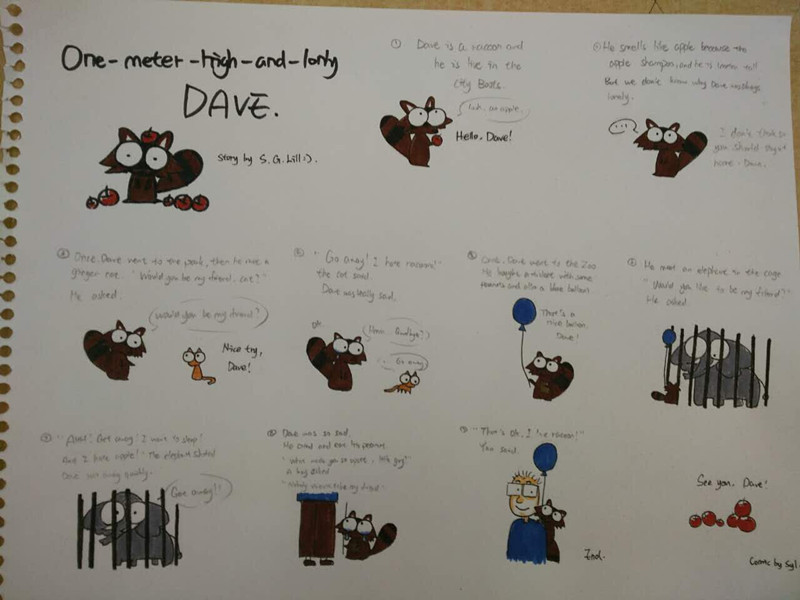 One-meter-high-and-lonly
DAVE.
Story by S. G. Lill :).
① Dave is a racoon and
he is live in the
city Bads.
an apple.
Hello, Dave!
He smells like apple because the
apple shampoo, and he is 1 meter tall
But we don't know why Dave
lonely.
...
I don't think so
you should stay at
home, Dave.
Once, Dave went to the park, then he meet a
ginger cat. "Would you be my friend, cat?"
He asked.
Would you be my friend?
Nice try,
Dave!
"Go away! I hate racoon!"
the cat said.
Dave was really sad,
Oh.
Goodbye?
Go away
Once, Dave went to the Zoo.
He bought a ticket with some
peanuts and also a blue balloon
That's a
nice balloon,
Dave!
He meet an elephant in the cage.
"Would you like to be my friend?"
He asked.
Get away! I want to sleep!
And I hate apple!" The elephant shouted
Dave run away quickly.
Go away!!
Dave was so sad
He cried and eat his peanuts.
A boy asked
"Nobody wants to be my friend"
"That's Ok, I like racoon!"
You said.
End.
See you, Dave!
Comic by Syl